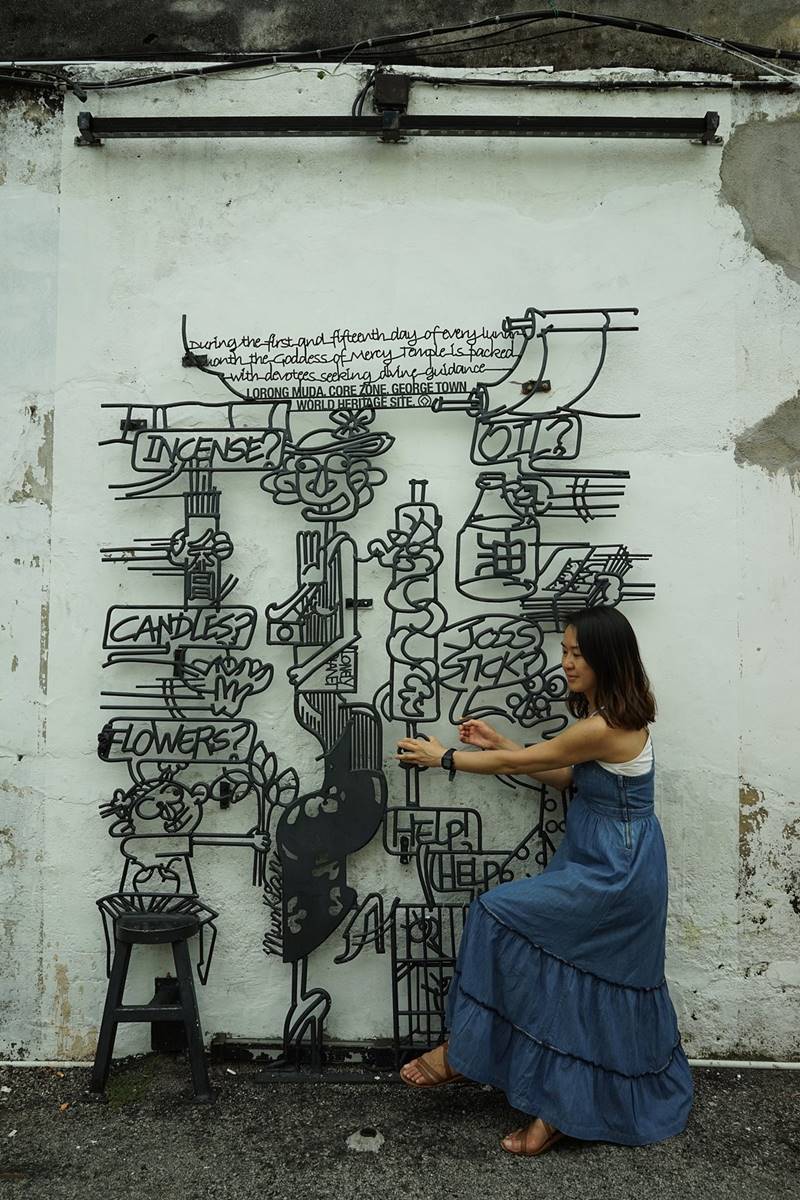 During the first and fifteenth day of every lunar
month the Goddess of Mercy Temple is packed
with devotees seeking divine guidance
LORONG MUDA. CORE ZONE. GEORGE TOWN
WORLD HERITAGE SITE.
INCENSE?
OIL?
香
油
CANDLES?
JOSS
STICK?
FLOWERS?
HELP!
HELP